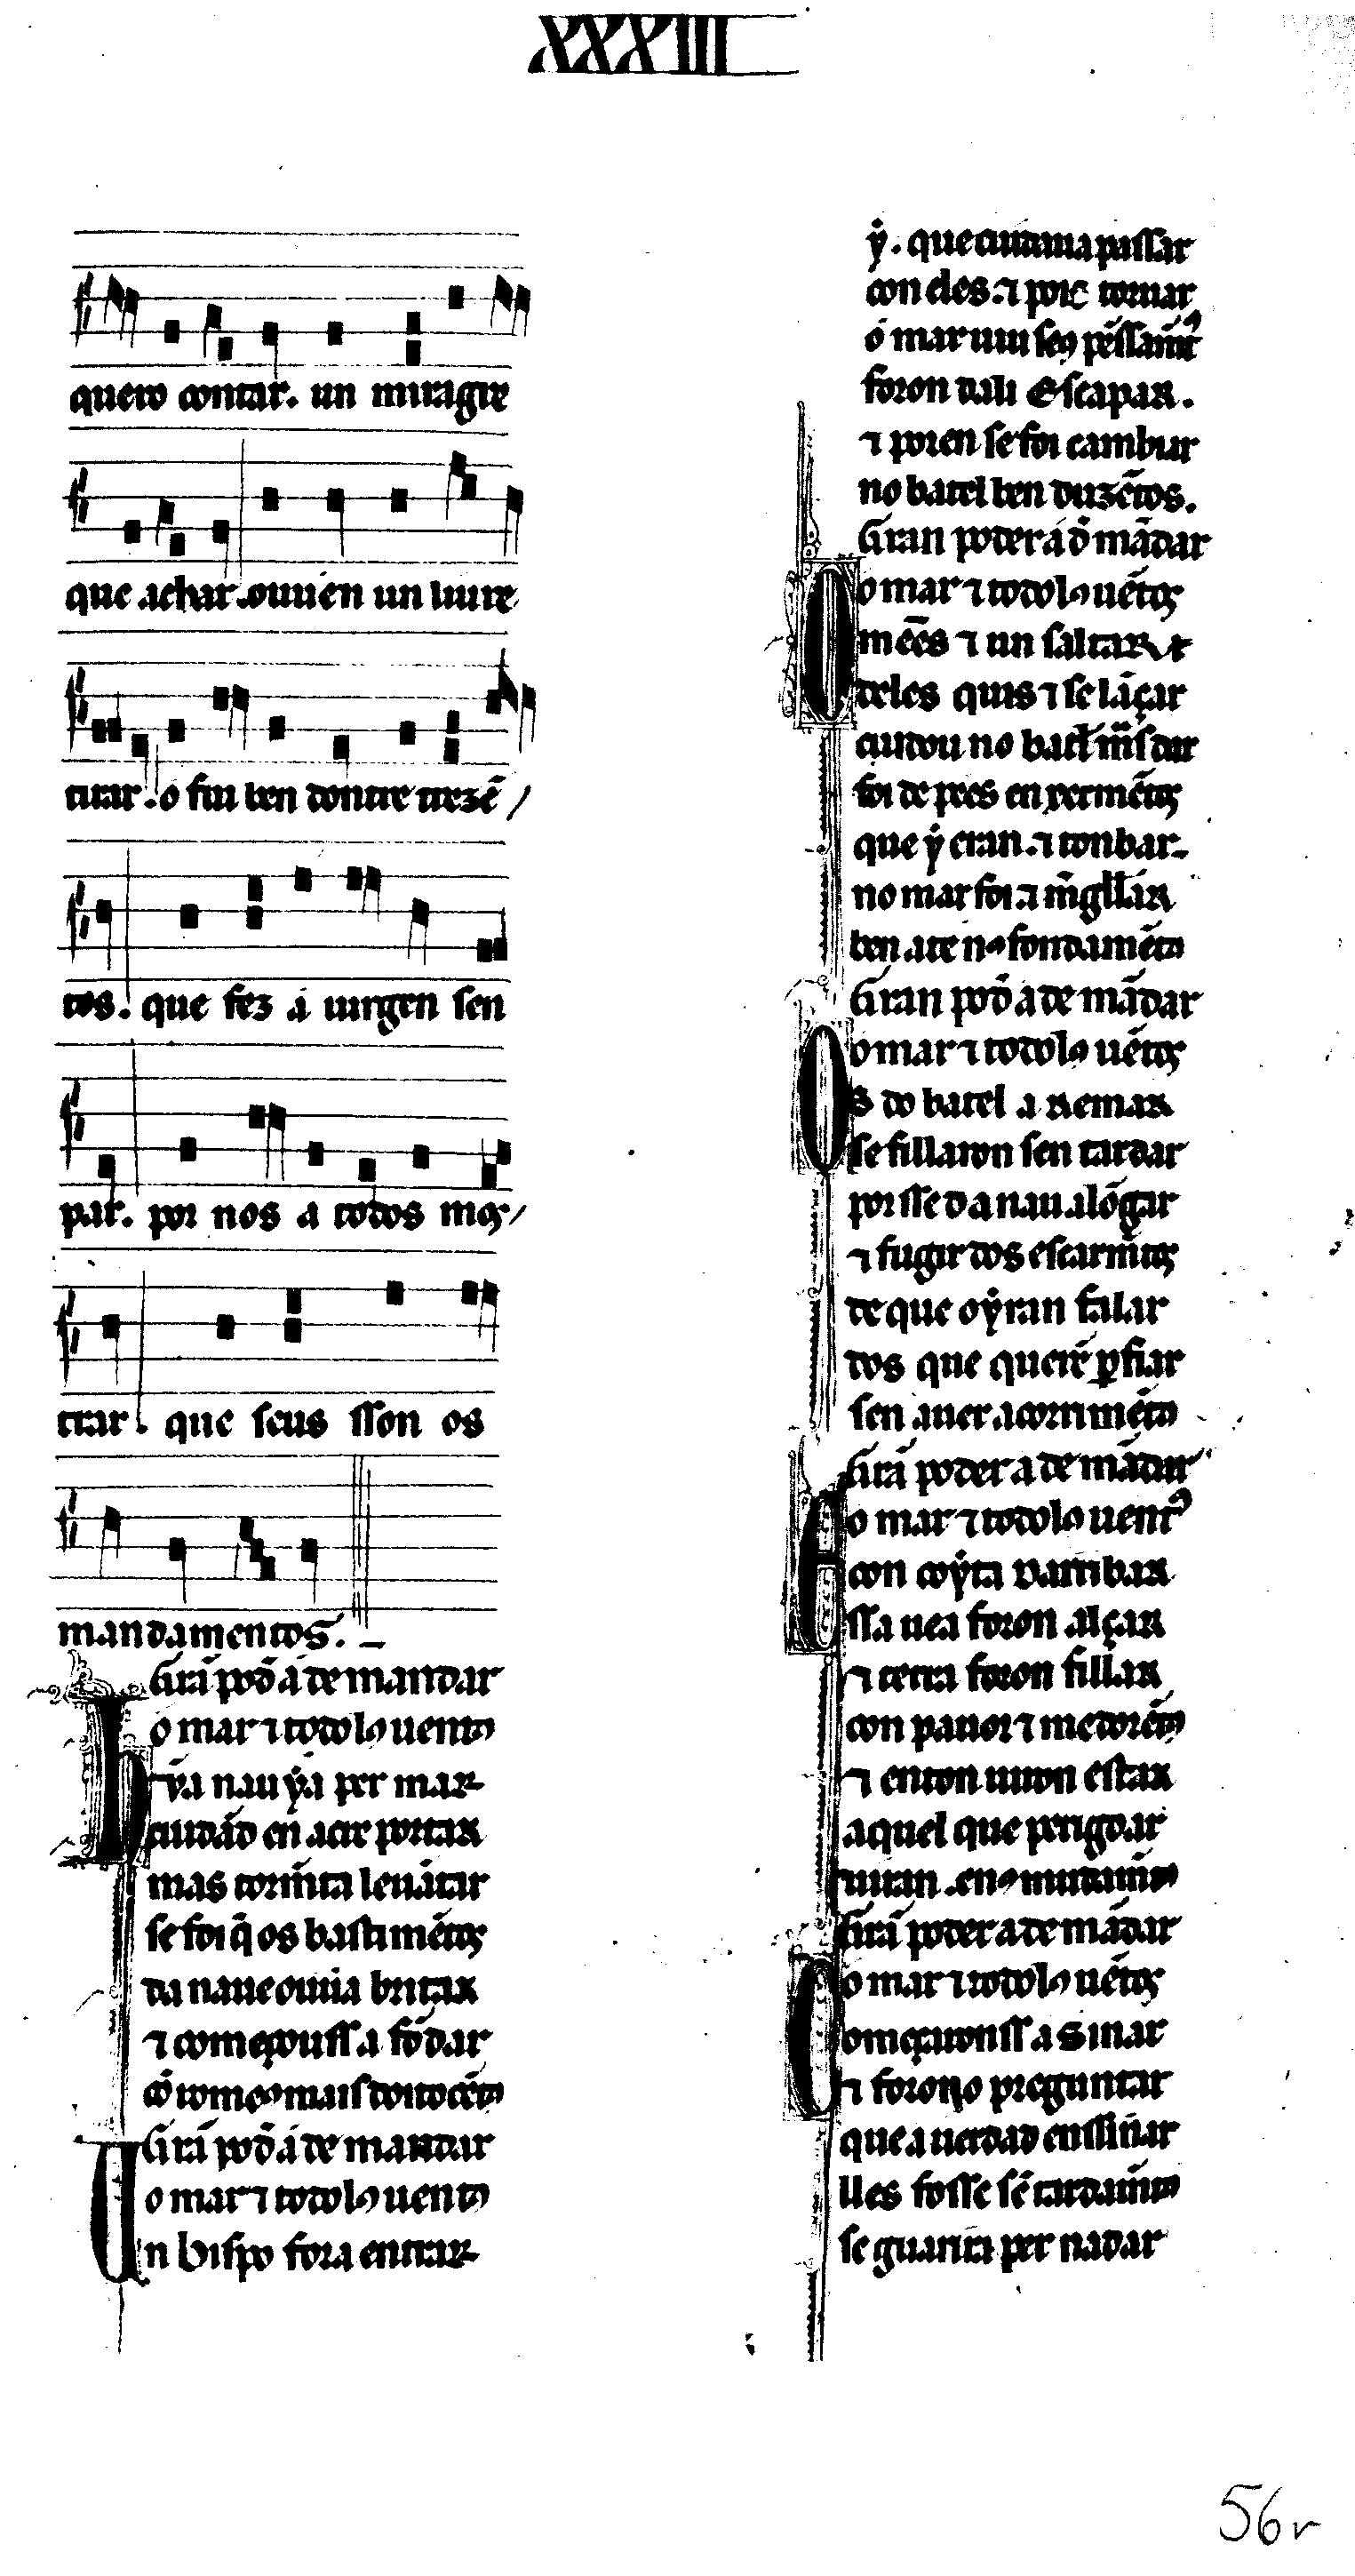 XXXIII
quero contar. un miragre
que achar. ouuí en un liure
tirar. o fiu ben dontre trezē
tos. que fez á uirgen sen
par. por nos a todos mos
trar. que seus sson os
mandamentos.
Grā pod̄ á de mandar
o mar ⁊ todolos uentos
Hūa nau ẏa per mar
cuidād en acre portar
mas tormēta leuātar
se foi q̄ os bastimētos
da naue ouuia britar
⁊ começoussa fōdar
cō romeos mais doitocētos
Grā pod̄ á de mandar
o mar ⁊ todolos uentos
Un bispo fora entrar
ẏ. que cuidaua passar
con eles. ⁊ pois tornar
o mar uiu seus pēssamētos
foron dali escapar.
⁊ poren se foi cambiar
no batel ben duzētos.
Gran poder á d̄ mādar
o mar ⁊ todolos uētos
Omēes ⁊ un saltar
deles quis ⁊ se lāçar
cuidou no batel mas dar
foi de pees en xermētos
que ẏ eran. ⁊ tonbar
no mar foi ⁊ mergullar
ben ate nos fondamētos
Gran pod̄ a de mādar
o mar ⁊ todolos uētos
Os do batel a remar
se fillaron sen tardar
por sse da nau alōgar
⁊ fugir dos escarmētos
de que oẏran falar
dos que querē perfiar
sen auer acorrimētos
Grā poder a de mādar
o mar ⁊ todolos uentos
E con coẏta darribar
ssa uea foron alçar
⁊ terra foron fillar
con pauor ⁊ medorētos
⁊ enton uiron estar
aquel que perigoar
uiran. enos mudamētos
Grā poder a de mādar
o mar ⁊ todolos uētos
Começaronss a sinar
⁊ forono preguntar
que a uerdad enssinar
lles fosse sē tardamētos
se guarira per nadar
56r